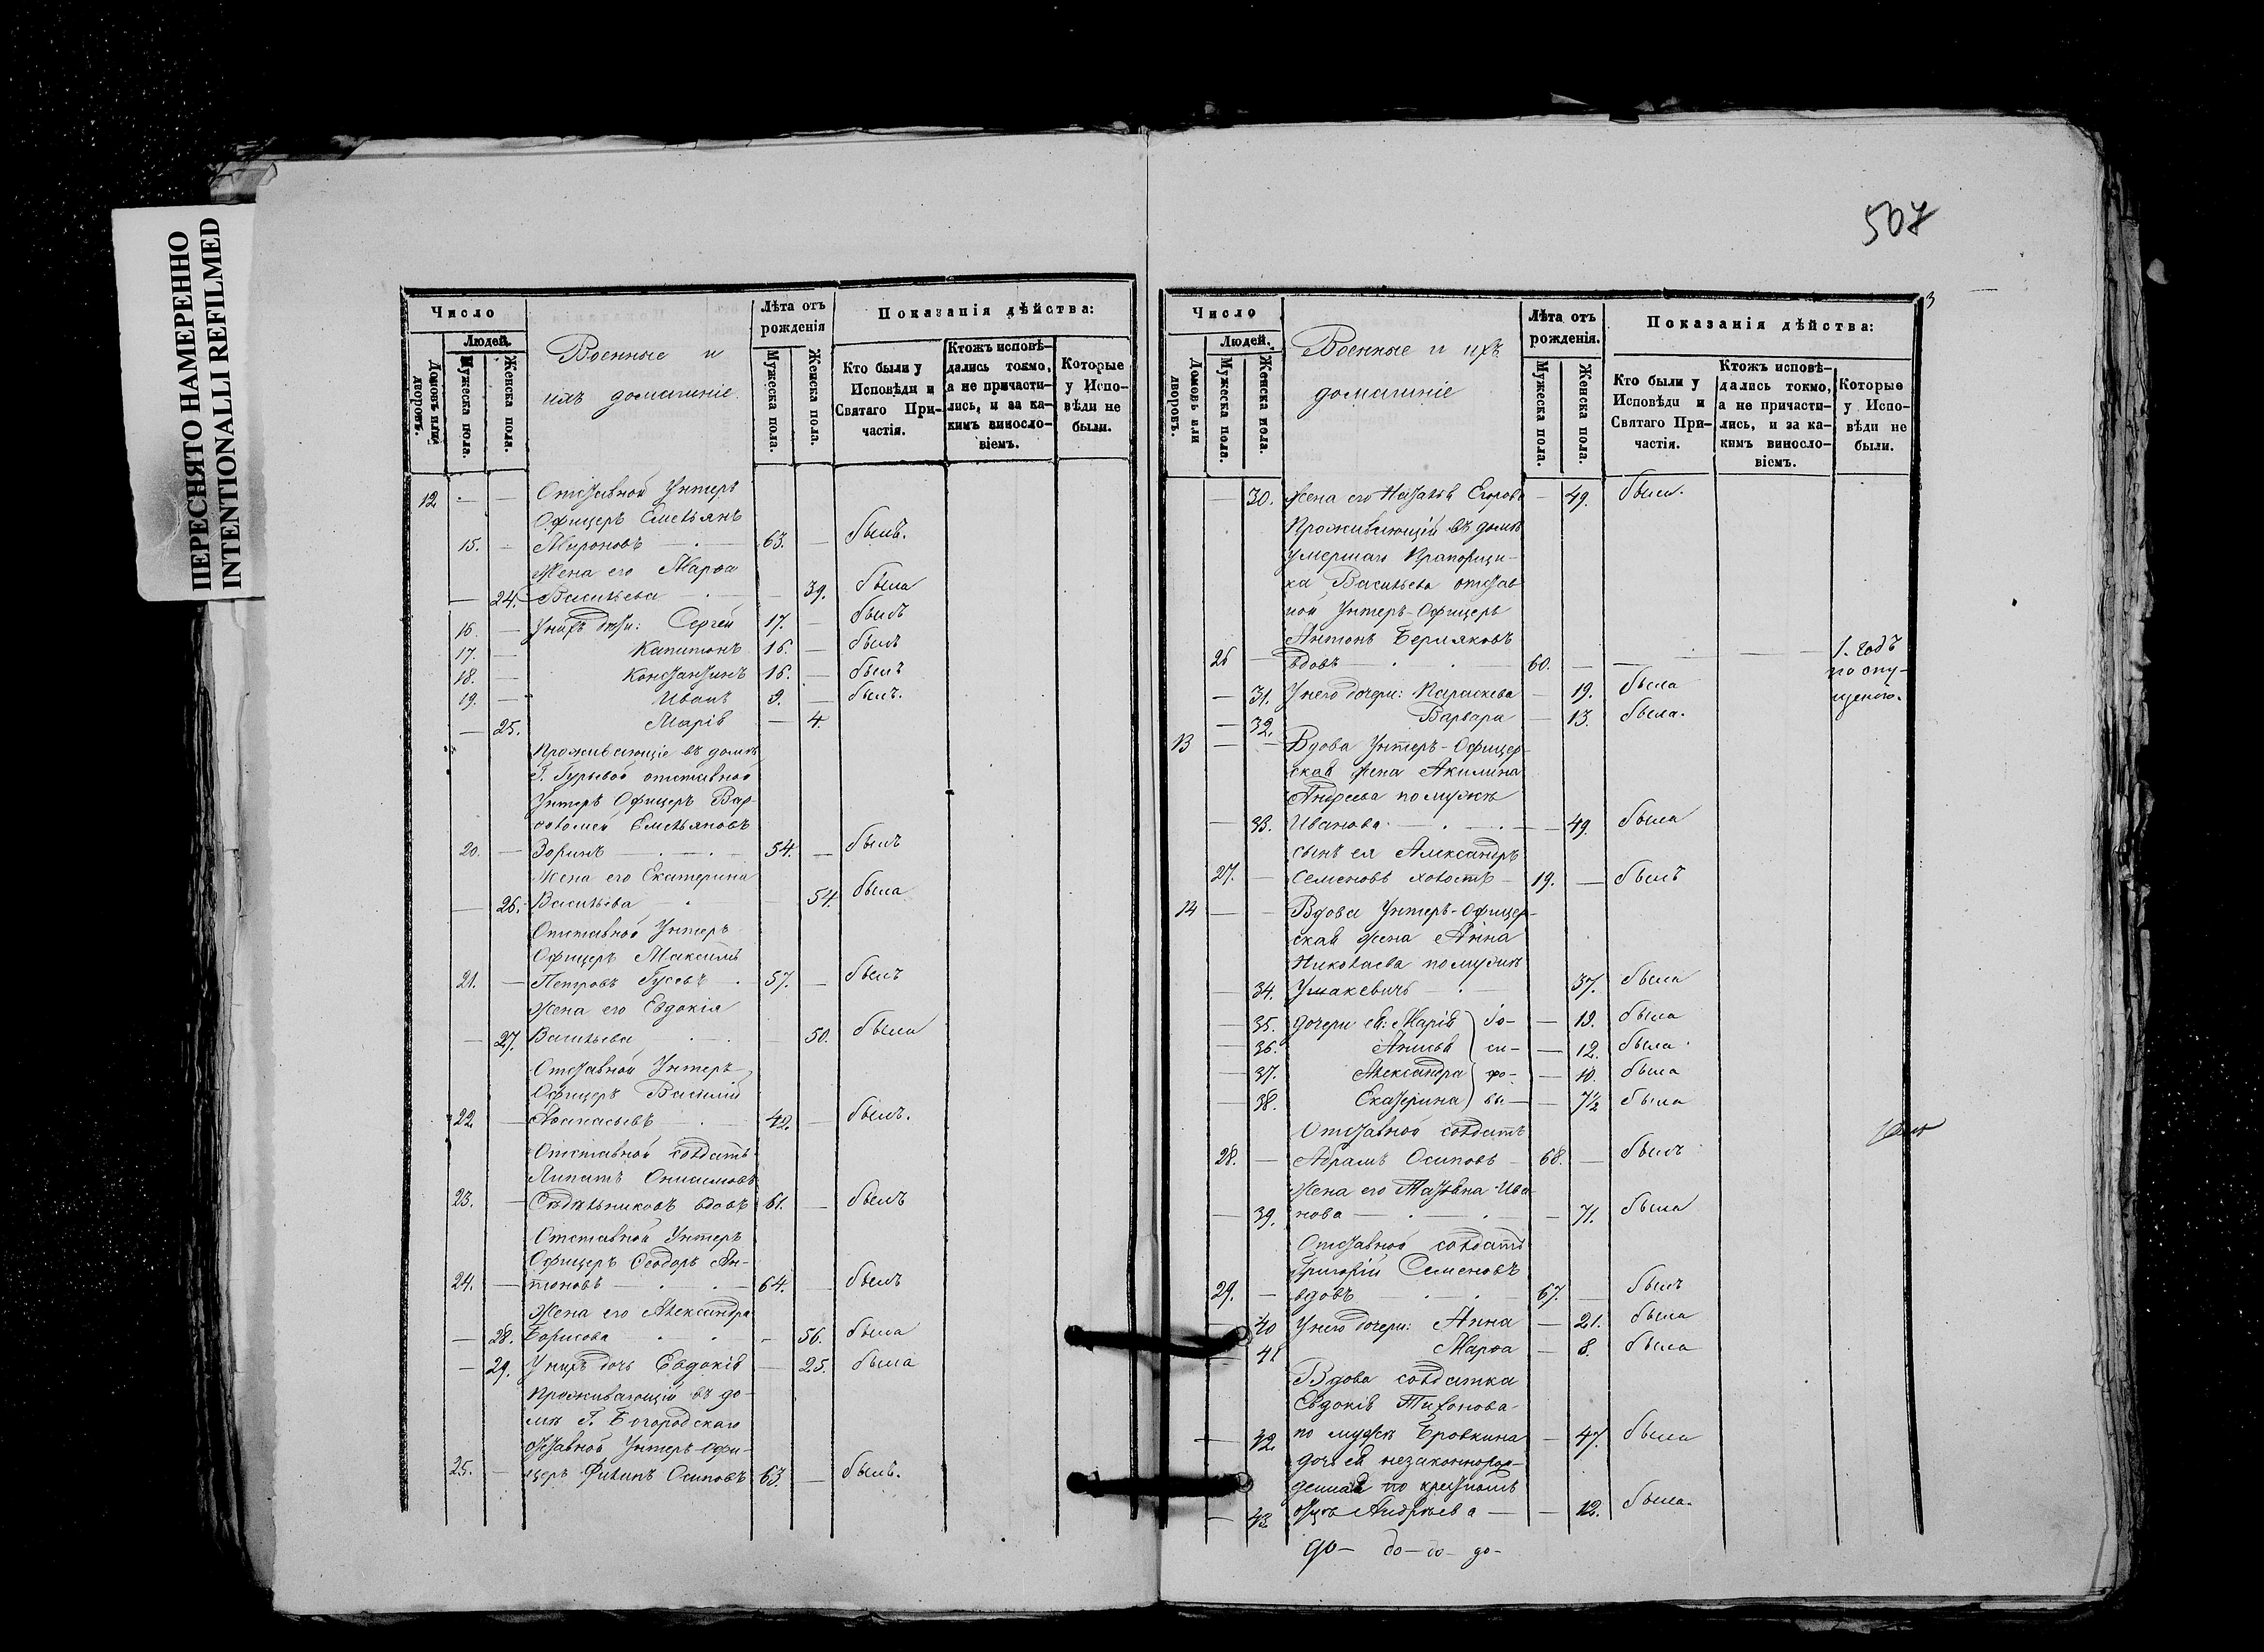 ПЕРЕСНЯТО НАМЕРЕННО
INTENTIONALLI REFILMED
507
3
Число
Людей.
Домовъ или дворовъ.
Мужеска пола.
Женска пола.
Военные и
ихъ домашніе.
Лѣта отъ
рожденія
Мужеска пола.
Женска пола.
Показанія дѣйства:
Кто были у
Исповѣди и
Святаго При-
частія.
Ктожъ исповѣ-
дались токмо,
а не причасти-
лись, и за ка-
кимъ винослo-
віемъ.
Которые
у Испо-
вѣди не
были.
12 — — Отставной Унтеръ
Офицеръ Емельянъ
15. — Мироновъ — 63. — былъ.
Жена его Марѳа
— 24. Васильева — 39. была
16. — У нихъ дѣти: Сергей 17. — былъ
17. — Капитонъ 16. — былъ
18. — Константинъ 16. — былъ
19. — Иванъ 9. — былъ.
— 25. Марія — 4.
Проживающіе въ домѣ
Г. Гурьевой отставной
Унтеръ Офицеръ Вар-
ѳоломей Емельяновъ
20. — Зоринъ — 54. — былъ
Жена его Екатерина
— 26. Васильева — 54. была
Отставной Унтеръ
Офицеръ Максимъ
21. — Петровъ Гусевъ — 57. — былъ
Жена его Евдокія
— 27. Васильева — 50. была
Отставной Унтеръ-
Офицеръ Василій
22. — Аѳанасьевъ — 42. — былъ.
Отставной солдатъ
Липатъ Онисимовъ
23. — Сѣдѣльниковъ вдовъ 61. — былъ
Отставной Унтеръ
Офицеръ Ѳеодоръ Ан-
24. — тоновъ — 64. — былъ
Жена его Александра
— 28. Борисова — 56. была
— 29. У нихъ дочь Евдокія — 25. была
Проживающій въ до-
мѣ Г. Богородскаго
отставной Унтеръ-Офи-
25. — церъ Филипъ Осиповъ 63. — былъ.
Число
Людей.
Домовъ или дворовъ.
Мужеска пола.
Женска пола.
Военные и ихъ
домашніе
Лѣта отъ
рожденія.
Мужеска пола.
Женска пола.
Показанія дѣйства:
Кто были у
Исповѣди и
Святаго При-
частія.
Ктожъ исповѣ-
дались токмо,
а не причасти-
лись, и за ка-
кимъ винослo-
віемъ.
Которые
у Испо-
вѣди не
были.
— 30. Жена его Наталія Егорова — 49. была.
Проживающій въ домѣ
умершаго Прапорщи-
ка Васильева отстав-
ной Унтеръ-Офицеръ
Антонъ Берляковъ
26 — вдовъ — 60. — — — 1. годъ
по опу-
щенію.
— 31. У него дочери: Параскева — 19. была
— 32. Варвара — 13. была.
13 — — Вдова Унтеръ-Офицер-
ская жена Акилина
Андреева по мужѣ
— 33. Иванова — 49. была
сынъ ея Александръ
27. — Семеновъ холостъ — 19. — былъ
14 — — Вдова Унтеръ-Офицер-
ская жена Анна
Николаева по мужѣ
— 34. Ушакевичъ — 37. была
— 35. дочери ея: Марія — 19. была
— 36. Анисья — 12. была.
— 37. Александра — 10. была
— 38. Екатерина — 7½ была
Отставной солдатъ
28. — Абрамъ Осиповъ — 68. — былъ
Жена его Татьяна Ива-
— 39. нова — 71. была
Отставной солдатъ
Григорій Семеновъ
29. — вдовъ — 67. — былъ
— 40 У него дочери: Анна — 21. была
— 41 Марѳа — 8. была
Вдова солдатка
Евдокія Тихонова
— 42. по мужѣ Бровкина — 47. была
дочь ея незаконнорож-
денная по крестномъ
— 43. отцѣ Андреева — 12. была.